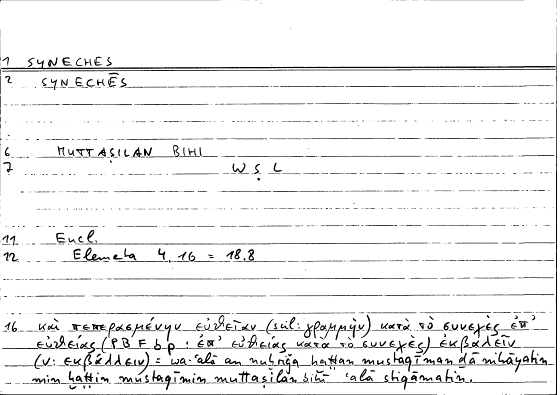 1 SYNECHES
2 SYNECHĒS
6 MUTTAṢILAN BIHI
7 W Ṣ L
11 Eucl.
12 Elementa 4,16 = 18,8
16 καὶ πεπερασμένην εὐθεῖαν (scil. γραμμὴν) κατὰ τὸ συνεχὲς ἐπ'
εὐθείας (PBFbp : ἐπ' εὐθείας κατὰ τὸ συνεχὲς) ἐκβαλεῖν
(V: ἐκβάλλειν) = wa-ʿalā an nuḫriǧa ḫaṭṭan mustaqīman ḏā nihāyatin
min ḫaṭṭin mustaqīmin muttaṣilan bihī ʿalā stiqāmatin.